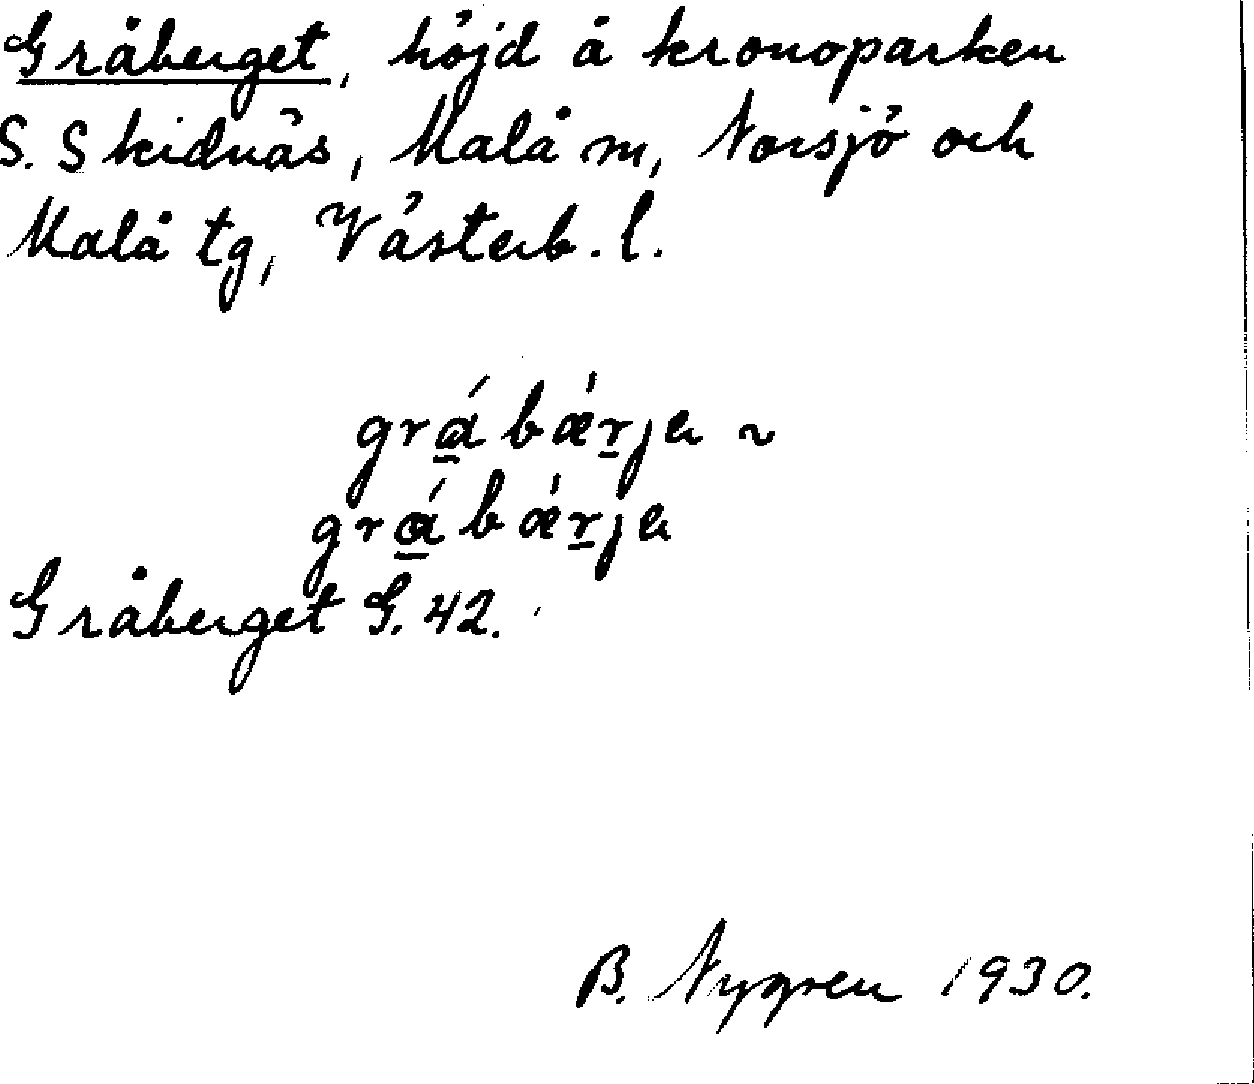 Gråberget, höjd å kronoparken
S. Skidnäs, Malå m, Norsjö och
Malå tg, Västerb. l.
grá̱ bǽṟja ~
grá̱ bǽṟja
Gråberget G. 42.
B. Nygren 1930.